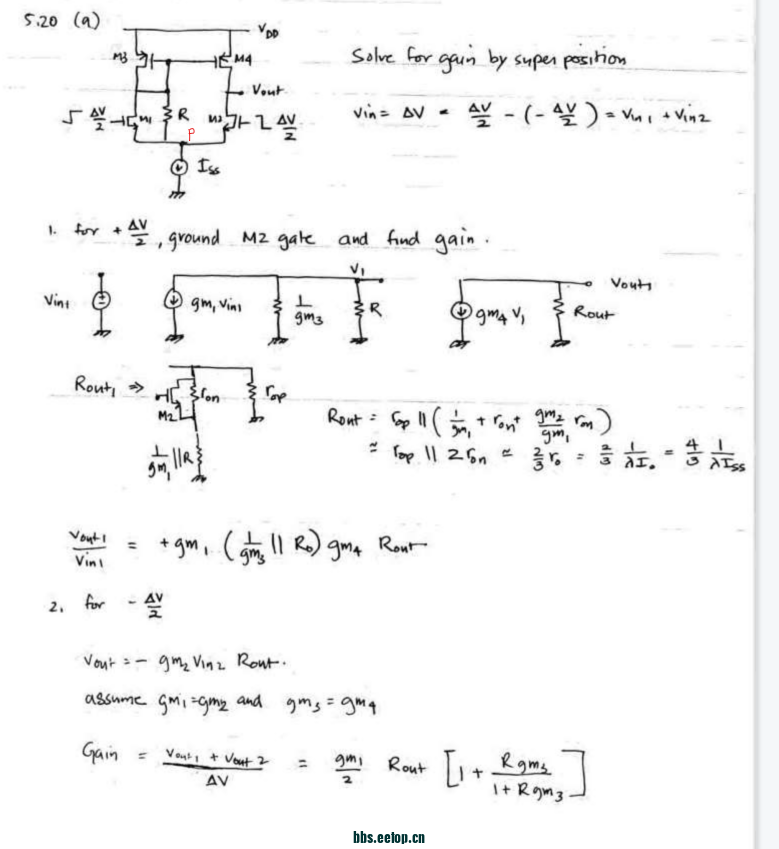 5.20 (a)
VDD
M3
M4
Vout
ΔV/2
M1
R
M2
ΔV/2
P
Iss
Solve for gain by super position
Vin = ΔV = ΔV/2 - (-ΔV/2) = Vin1 + Vin2
1. for + ΔV/2, ground M2 gate and find gain.
Vin1
gm1 Vin1
1/gm3
V1
R
gm4 V1
Vout1
Rout
Rout1 ⇒
M2
ron
rop
1/gm1 || R
Rout = rop || ( 1/gm1 + ron + gm2/gm1 ron )
≈ rop || 2ron ≈ 2/3 ro = 2/3 1/λIo = 4/3 1/λIss
Vout1/Vin1 = +gm1 ( 1/gm3 || Ro ) gm4 Rout
2. for - ΔV/2
Vout = - gm2 Vin2 Rout.
assume gm1 = gm2 and gm3 = gm4
Gain = Vout1 + Vout2 / ΔV = gm1/2 Rout [ 1 + Rgm3 / 1 + Rgm3 ]
bbs.eetop.cn